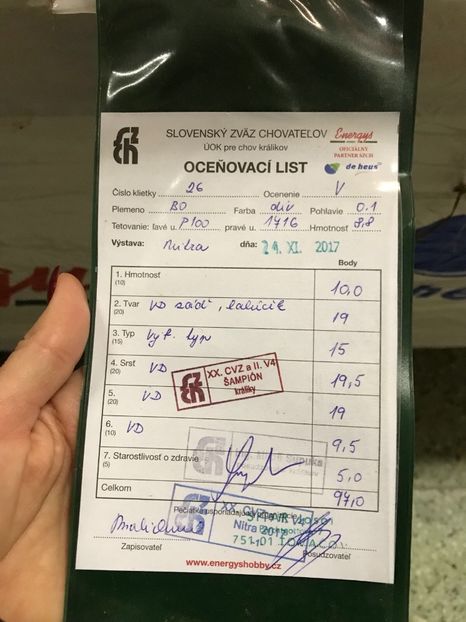 SLOVENSKÝ ZVÄZ CHOVATEĽOV
ÚOK pre chov králikov
OCEŇOVACÍ LIST
Energys
OFICIÁLNY
PARTNER SZCH
de heus
Číslo klietky 26 Ocenenie V
Plemeno BO Farba div Pohlavie 0.1
Tetovanie: ľavé u. P100 pravé u. 1716 Hmotnosť 8,8
Výstava: Nitra dňa: 24. XI. 2017
Body
1. Hmotnosť (10) 10,0
2. Tvar (20) VD zadí, 19
3. Typ (15) Výb. typ 15
4. Srsť (20) VD 19,5
5. (20) VD 19
6. (10) VD 9,5
7. Starostlivosť o zdravie (5) 5,0
Celkom 97,0
XX. CVZ a II. V4
ŠAMPIÓN
králiky
XX. CVZ a II. V4
Nitra 2017
751 01 TOVAČOV
Zapisovateľ
Posudzovateľ
www.energyshobby.cz